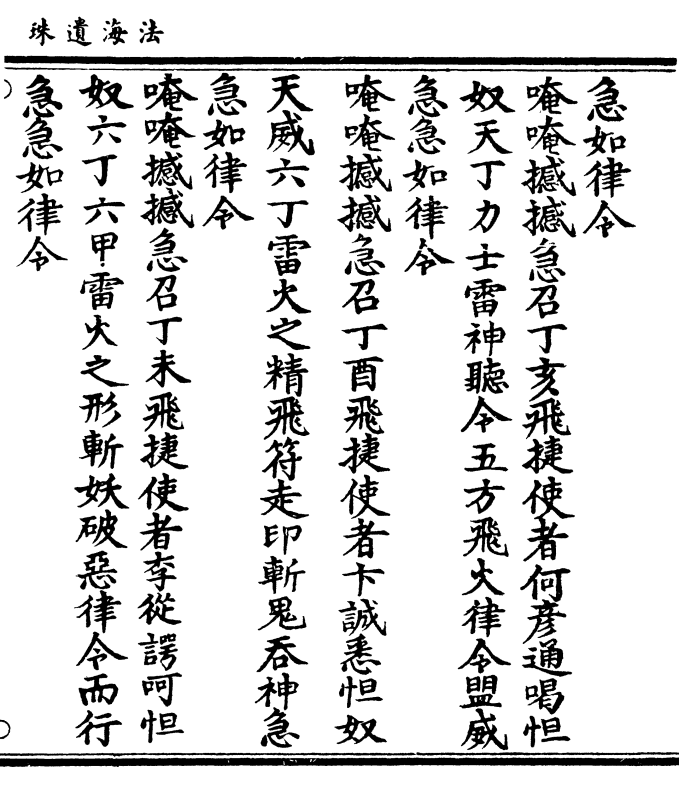 法海遺珠
急如律令
唵唵撼撼急召丁亥飛捷使者何彥通喝怛
奴天丁力士雷神聽令五方飛火律令盟威
急急如律令
唵唵撼撼急召丁酉飛捷使者卞誠悉怛奴
天威六丁雷火之精飛符走印斬鬼吞神急
急如律令
唵唵撼撼急召丁未飛捷使者李從諤呵怛
奴六丁六甲雷火之形斬妖破惡律令而行
急急如律令